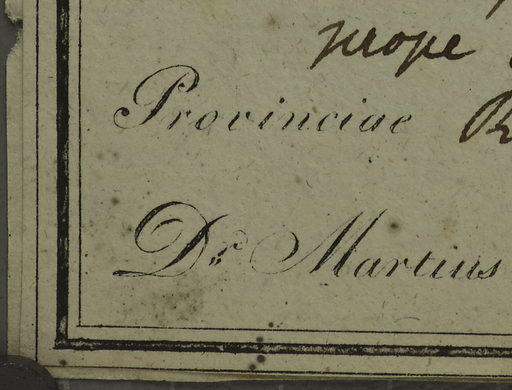 prope
Provinciae
Dr. Martius